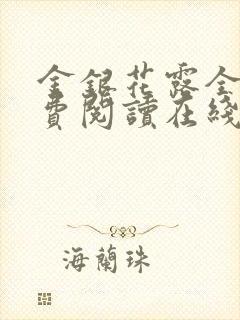 金銀花露全
費閱讀在綫
海蘭珠